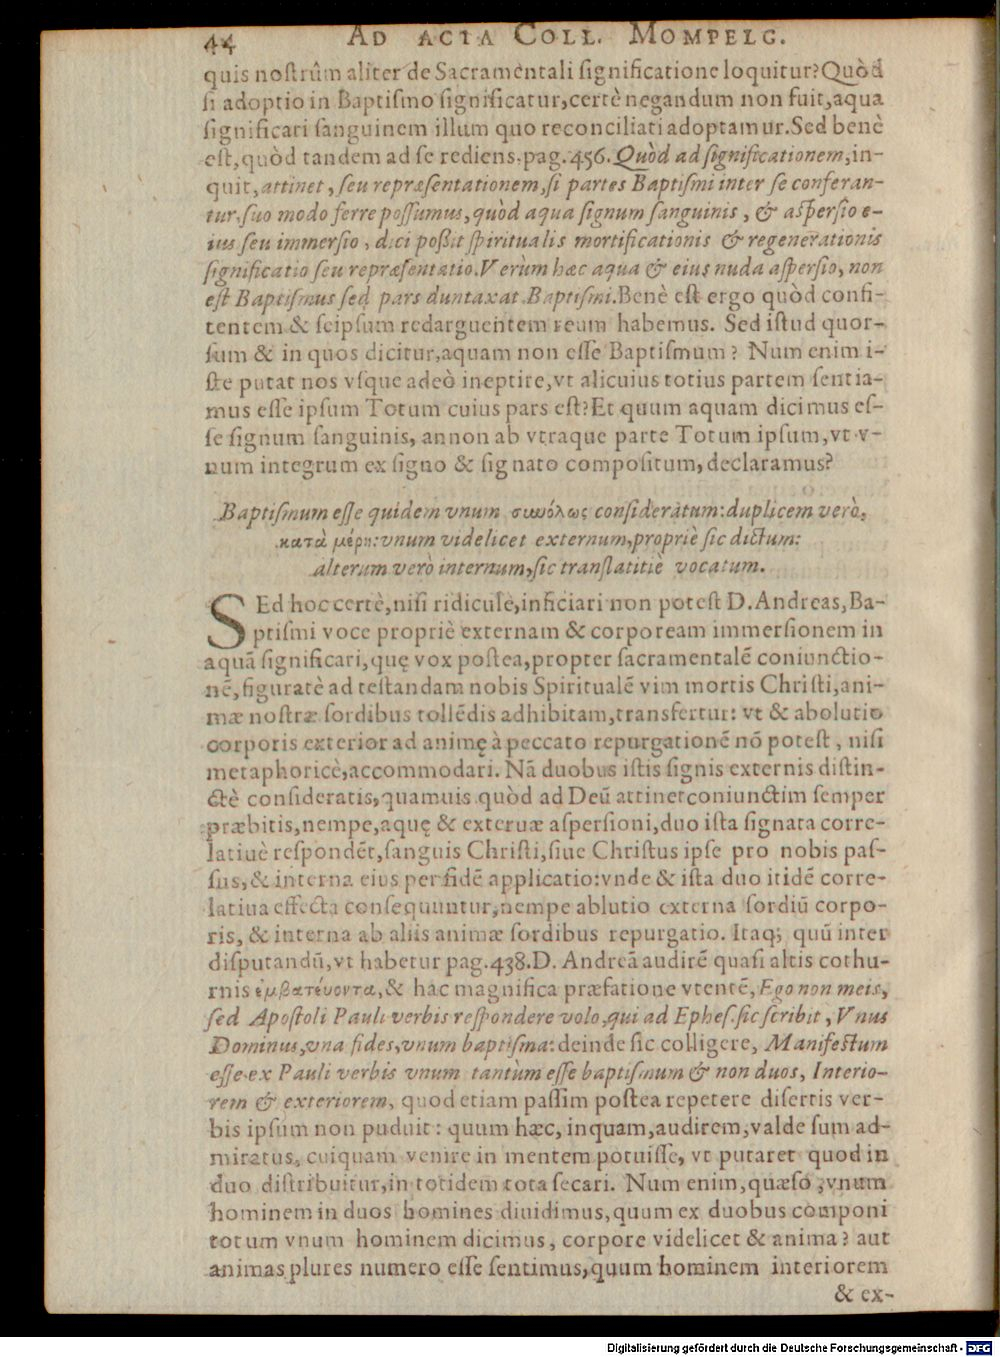 44 AD ACTA COLL. MOMPELG.
quis nostrûm aliter de Sacramentali significatione loquitur? Quòd
si adoptio in Baptismo significatur, certè negandum non fuit, aqua
significari sanguinem illum quo reconciliati adoptamur. Sed benè
est, quòd tandem ad se rediens, pag. 456. Quòd ad significationem, in-
quit, attinet, seu repræsentationem, si partes Baptismi inter se conferan-
tur, suo modo ferre possumus, quòd aqua signum sanguinis, & aspersio e-
ius seu immersio, dici poßit spiritualis mortificationis & regenerationis
significatio seu repræsentatio. Verùm hæc aqua & eius nuda aspersio, non
est Baptismus sed pars duntaxat Baptismi. Benè est ergo quòd confi-
tentem & seipsum redarguentem reum habemus. Sed istud quor-
sum & in quos dicitur, aquam non esse Baptismum? Num enim i-
ste putat nos vsque adeò ineptire, vt alicuius totius partem sentia-
mus esse ipsum Totum cuius pars est? Et quum aquam dicimus es-
se signum sanguinis, annon ab vtraque parte Totum ipsum, vt v-
num integrum ex signo & signato compositum, declaramus?
Baptismum esse quidem vnum συνόλως consideratum: duplicem verò,
κατὰ μέρη: vnum videlicet externum, propriè sic dictum:
alterum verò internum, sic translatitiè vocatum.
SEd hoc certè, nisi ridiculè, inficiari non potest D. Andreas, Ba-
ptismi voce propriè externam & corpoream immersionem in
aquã significari, quę vox postea, propter sacramentalẽ coniunctio-
nẽ, figuratè ad testandam nobis Spiritualẽ vim mortis Christi, ani-
mæ nostræ sordibus tollẽdis adhibitam, transfertur: vt & abolutio
corporis exterior ad animę à peccato repurgationẽ nõ potest, nisi
metaphoricè, accommodari. Nã duobus istis signis externis distin-
ctè consideratis, quamuis quòd ad Deũ attinet coniunctim semper
præbitis, nempe, aquę & exteruæ aspersioni, duo ista signata corre-
latiuè respondẽt, sanguis Christi, siue Christus ipse pro nobis pas-
sus, & interna eius per fidẽ applicatio: vnde & ista duo itidẽ corre-
latiua effecta consequuntur, nempe ablutio externa sordiũ corpo-
ris, & interna ab aliis animæ sordibus repurgatio. Itaq; quũ inter
disputandũ, vt habetur pag. 438. D. Andreã audirẽ quasi altis cothu-
rnis ἐμβατέυοντα, & hac magnifica præfatione vtentẽ, Ego non meis,
sed Apostoli Pauli verbis respondere volo, qui ad Ephes. sic scribit, Vnus
Dominus, vna fides, vnum baptisma: deinde sic colligere, Manifestum
esse ex Pauli verbis vnum tantùm esse baptismum & non duos, Interio-
rem & exteriorem, quod etiam passim postea repetere disertis ver-
bis ipsum non puduit: quum hæc, inquam, audirem, valde sum ad-
miratus, cuiquam venire in mentem potuisse, vt putaret quod in
duo distribuitur, in totidem tota secari. Num enim, quæso, vnum
hominem in duos homines diuidimus, quum ex duobus componi
totum vnum hominem dicimus, corpore videlicet & anima? aut
animas plures numero esse sentimus, quum hominem interiorem
& ex-
Digitalisierung gefördert durch die Deutsche Forschungsgemeinschaft - DFG